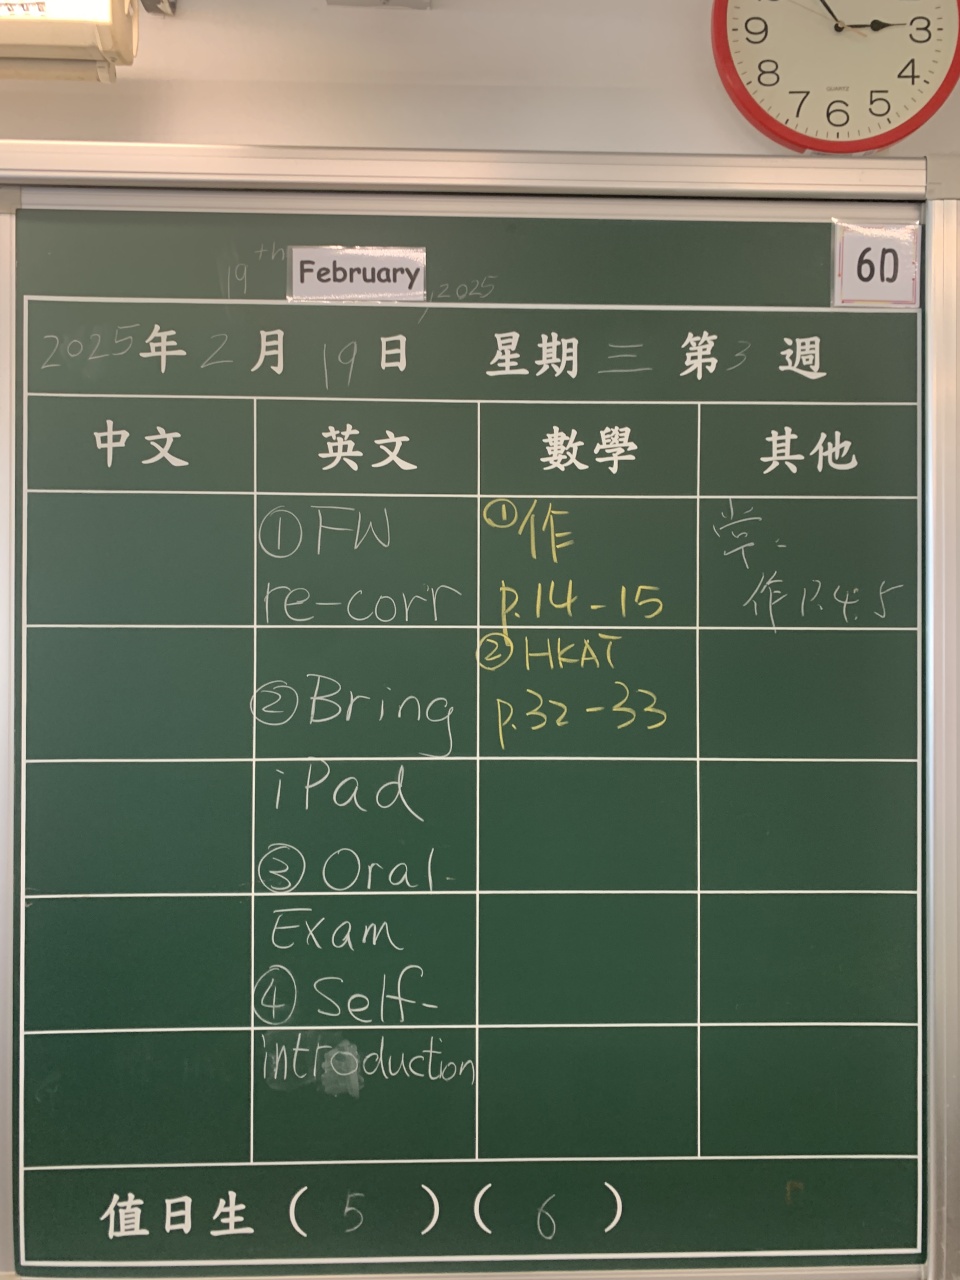 9 3
8 4
7 6 5
QUARTZ
19th February, 2025
6D
2025年2月19日 星期三 第3週
中文 英文 數學 其他
① FW
re-corr
② Bring
iPad
③ Oral-
Exam
④ Self-
introduction
①作
p.14-15
② HKAT
p.32-33
作 P.4,5
值日生 ( 5 ) ( 6 )